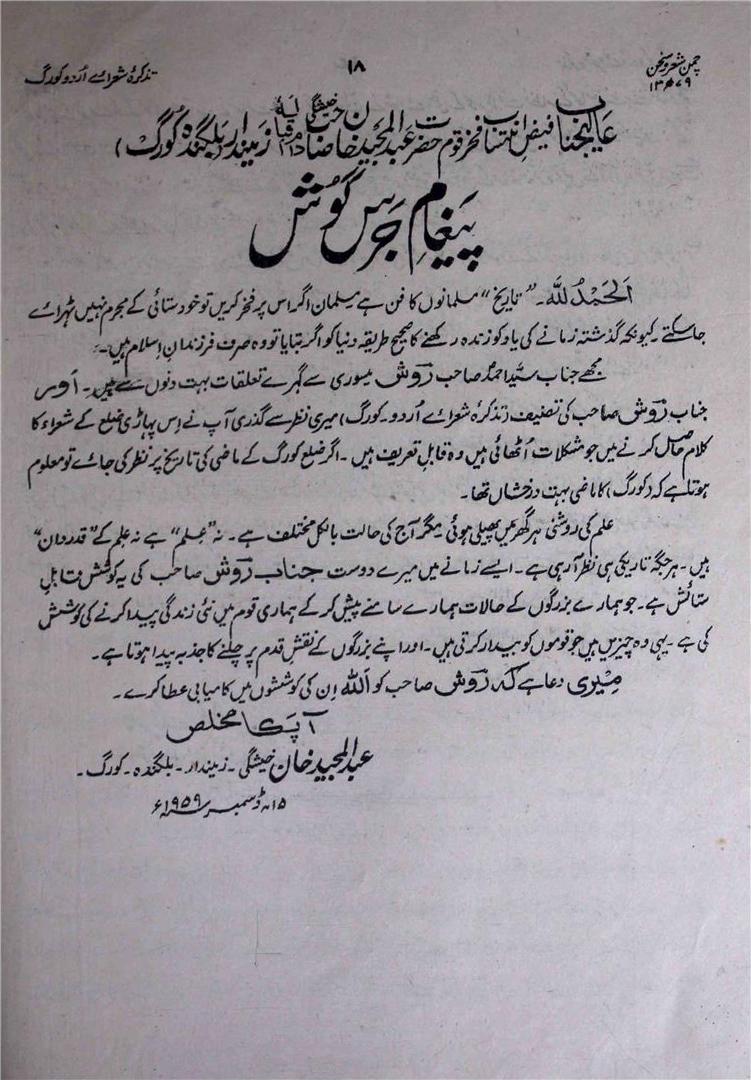 چمن شعر و سخن
۱۳۷۹ھ
۱۸
تذکرۂ شعرائے اُردو کورگ
عالیجناب فیض انتساب فخر قوم حضرت عبدالمجید خان صاحب خیشگی دام اقبالہ زمیندار (بلگنڈہ کورگ)
پیغامِ جرس گوش
الحمدُ للہ۔ "تاریخ" مسلمانوں کا فن ہے مسلمان اگر اس پر فخر کریں تو خودستائی کے مجرم نہیں ٹہرائے
جاسکتے۔ کیونکہ گذشتہ زمانے کی یاد کو زندہ رکھنے کا صحیح طریقہ دنیا کو اگر بتایا تو وہ صرف فرزندانِ اِسلام ہیں۔
مجھے جناب سیّد احمد صاحب رَوش میسوری سے گہرے تعلقات بہت دنوں سے ہیں۔ اور
جناب رَوش صاحب کی تصنیف (تذکرہ شعرائے اُردو۔ کورگ) میری نظر سے گذری آپ نے اِس پہاڑی ضلع کے شعراء کا
کلام حاصل کرنے میں جو مشکلات اُٹھائی ہیں وہ قابلِ تعریف ہیں۔ اگر ضلع کورگ کے ماضی کی تاریخ پر نظر کی جائے تو معلوم
ہوتا ہے کہ (کورگ) کا ماضی بہت درخشاں تھا۔
علم کی روشنی ہر گھر میں پھیلی ہوئی مگر آج کی حالت بالکل مختلف ہے۔ نہ "عِلم" ہے نہ عِلم کے "قدردان"
ہیں۔ ہر جگہ تاریکی ہی نظر آرہی ہے۔ ایسے زمانے میں میرے دوست جناب رَوش صاحب کی یہ کوشش قابلِ
ستائش ہے۔ جو ہمارے بزرگوں کے حالات ہمارے سامنے پیش کر کے ہماری قوم میں نئی زندگی پیدا کرنے کی کوشش
کی ہے۔ یہی وہ چیزیں ہیں جو قوموں کو بیدار کرتی ہیں۔ اور اپنے بزرگوں کے نقشِ قدم پر چلنے کا جذبہ پیدا ہوتا ہے۔
میری دعا ہے کہ رَوش صاحب کو اللہ اِن کی کوششوں میں کامیابی عطا کرے۔
آپ کا مخلص
عبدالمجید خان خیشگی۔ زمیندار۔ بلگنڈہ۔ کورگ۔
۱۵؍ ڈسمبر سنہ ۱۹۵۹ء